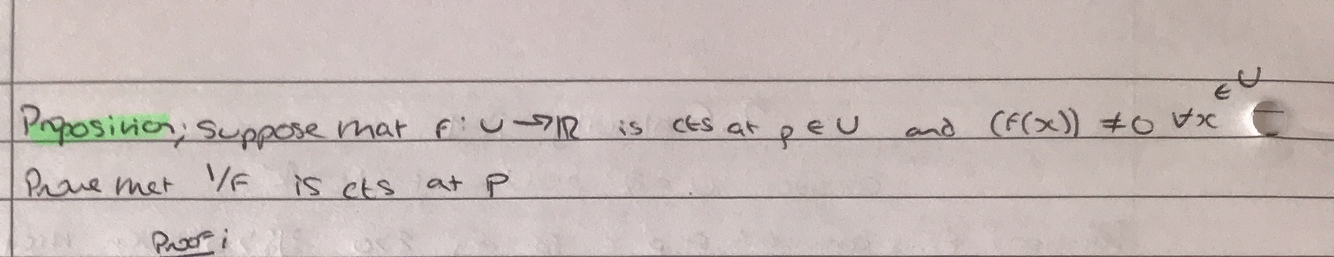 Proposition; Suppose that f: U → ℝ is cts at p ∈ U and (f(x)) ≠ 0 ∀x ∈ U
Prove that 1/f is cts at p
Proof: